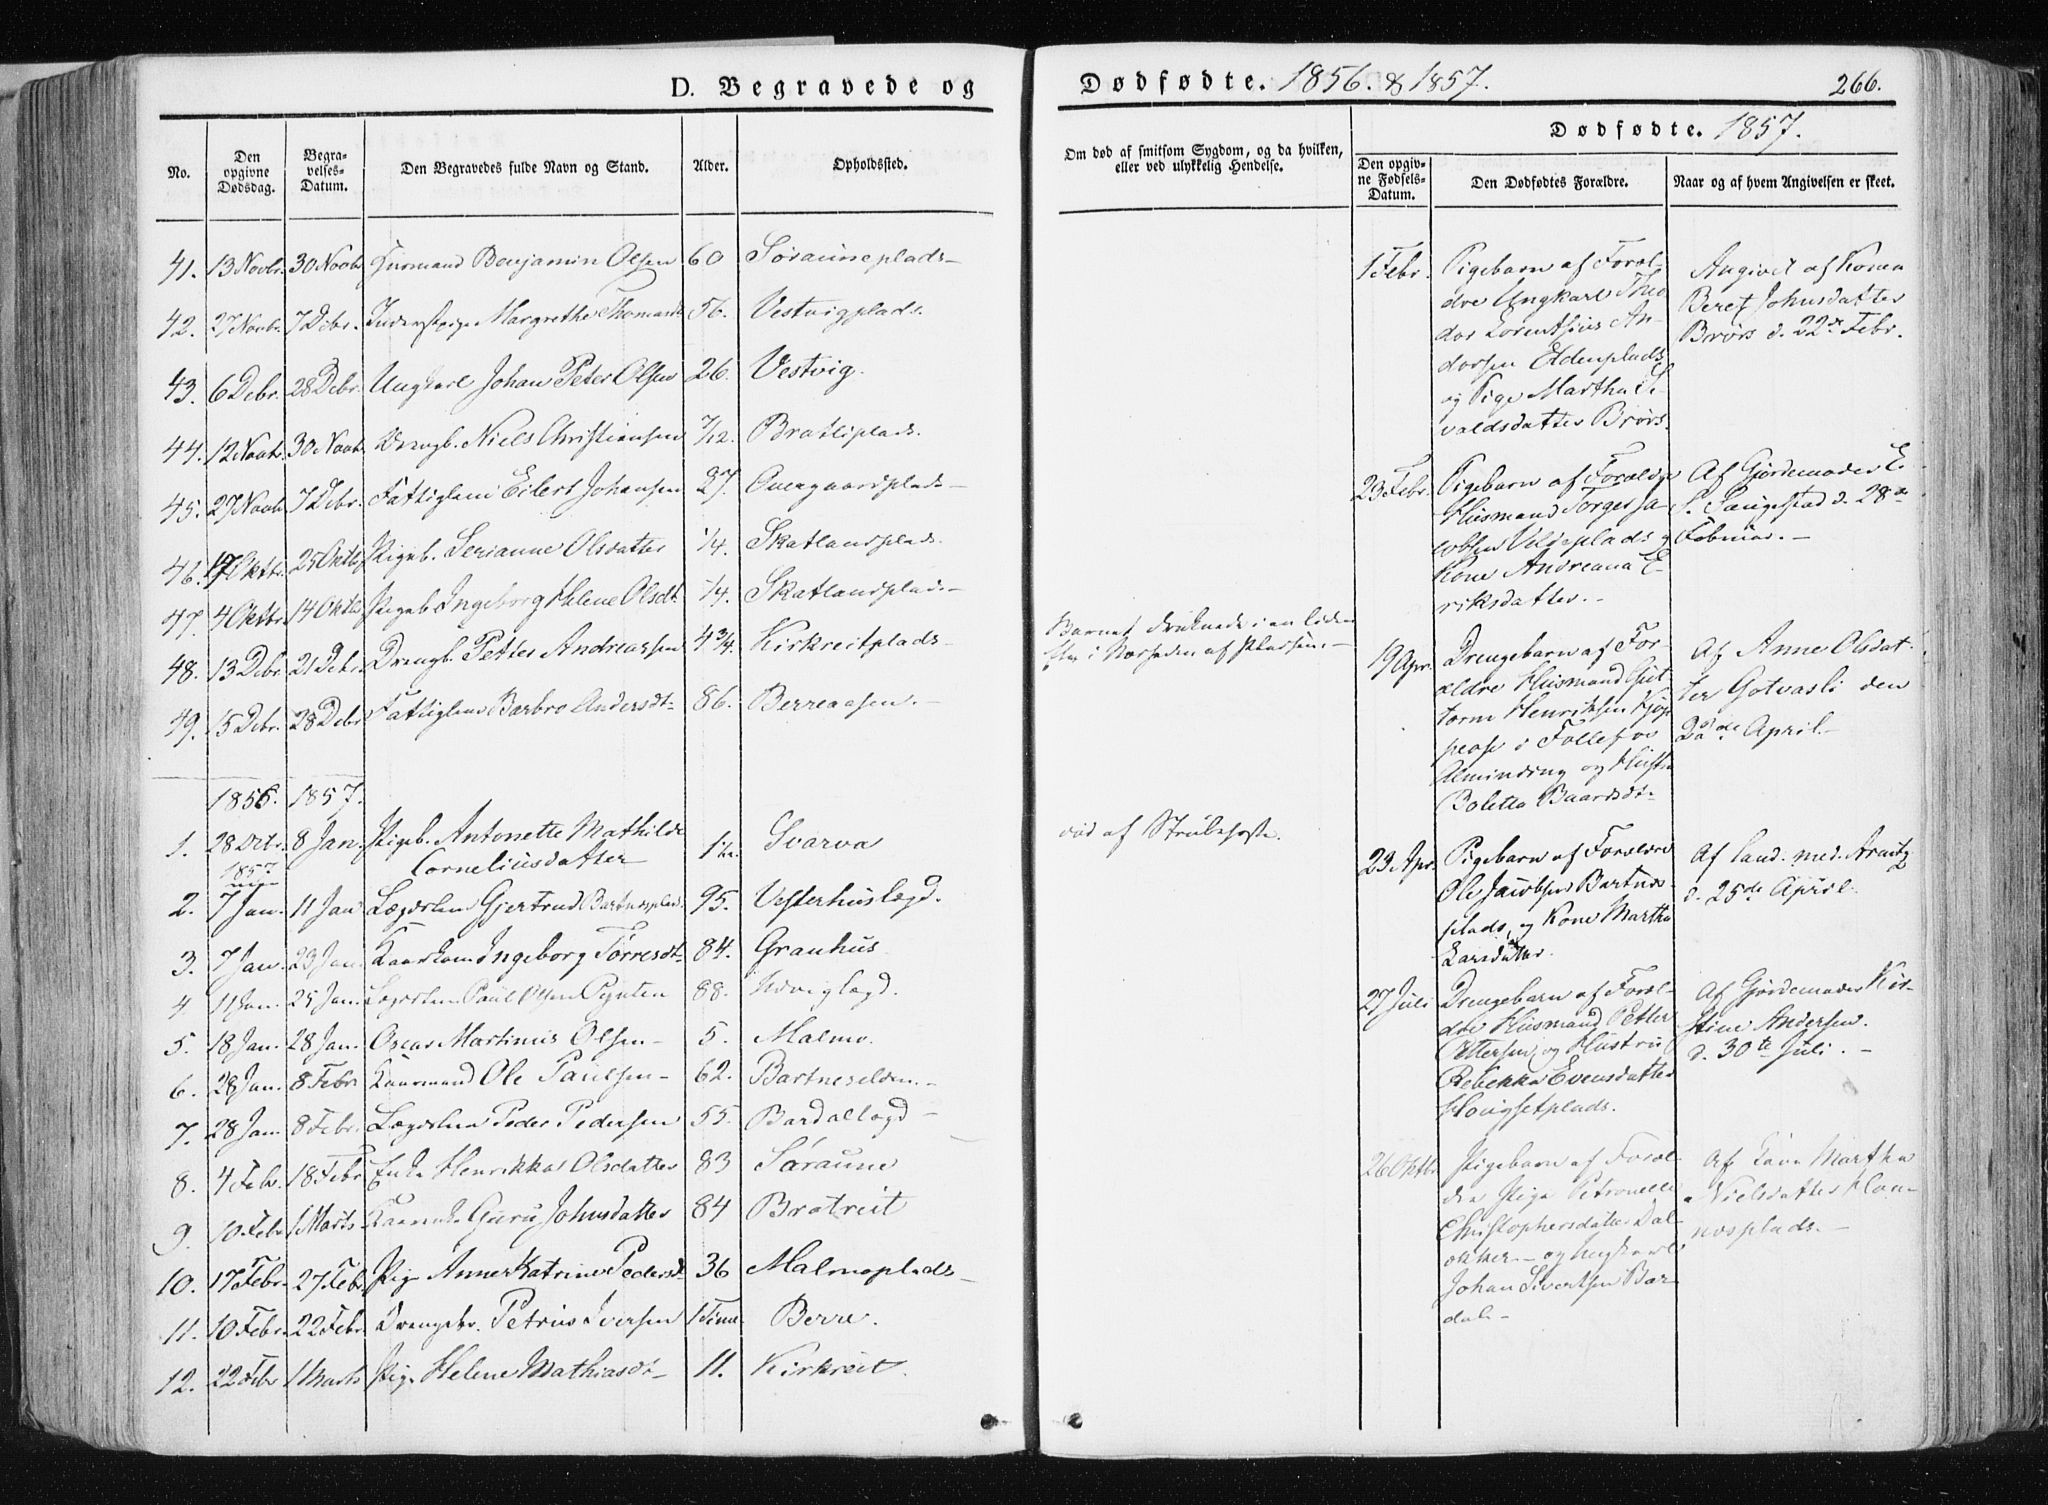 D. Begravede og
Dødfødte. 1856. & 1857.
266.
Dødfødte. 1857.
No.
Den opgivne Dødsdag.
Begravelses-Datum.
Den Begravedes fulde Navn og Stand.
Alder.
Opholdssted.
Om død af smitsom Sygdom, og da hvilken,
eller ved ulykkelig Hendelse.
Den opgivne Fødsels-Datum.
Den Dødfødtes Forældre.
Naar og af hvem Angivelsen er skeet.
41. 13 Novbr. 30 Novbr. Huusmand Benjamin Olsen 60 Sørauneplads
42. 27 Novbr. 7 Debr. Margrethe Thomasdt 56. Vestvigplads.
43. 6 Debr. 28 Debr. Ungkarl Johan Peter Olsen 26. Vestvig.
44. 12 Novbr. 30 Novbr. Drengb. Niels Christiansen 7/12. Bratliplads.
45. 27 Novbr. 7 Debr. Fattiglem Eilert Johansen 37. Overgaardplads
46. 17 Oktbr. 25 Oktbr. Pigeb. Serianne Olsdatter 1/4. Skatlandplads.
47. 4 Oktbr. 14 Oktbr. Pigeb. Ingeborg Helene Olsdt. 1/4. Skatlandplads
48. 13 Debr. 21 Debr. Drengb. Petter Andreassen 4 3/4. Kirkreitplads
Barnet druknede i en liden
49. 15 Debr. 28 Debr. Fattiglem Barbro Andersdt. 86. Berreaasen.
1856. 1857.
1. 28 Debr. 8 Jan. Pigeb. Antonette Mathilde
Corneliusdatter 1 Svarva
død af Strubehoste.
1857
2. 7 Jan. 11 Jan Lægdslem Gjertrud Bartnesplads 95. Vesterhuslægd.
3. 7 Jan. 23 Jan. Kaarkone Ingeborg Torresdt. 84. Granhus
4. 11 Jan. 25 Jan. Lægdslem Paul Olsen 88. Utviglægd.
5. 18 Jan. 28 Jan. Oscar Martinus Olsen 5. Malmo.
6. 28 Jan. 8 Febr. Kaarmand Ole Paulsen 62. Bartneselden.
7. 28 Jan. 8 Febr. Lægdslem Peder Pedersen 55. Bardallægd
8. 4 Febr. 18 Febr. Enke Henrikka Olsdatter 83 Søraune
9. 10 Febr. 1 Marts Guru Johnsdatter 84 Bratreit
10. 17 Febr. 27 Febr. Pige Anne Katrine Pedersdt. 36 Malmoplads
11. 10 Febr. 22 Febr. Drengebr. Petrus Iversen 1 Time Berre.
12. 22 Febr. 1 Marts Pige Helene Mathiasdt. 11. Kirkreit.
1 Febr.
Pigebarn af Foræl-
dre Ungkarl Theo-
dor Lorentsius An-
dorsen Eldenplads
og Pige Martha Si-
valdsdatter Brørs.
Angivet af Konen
Beret Johnsdatter
Brørs d. 22de Febr.
23 Febr.
Pigebarn af Forældre
Husmand Torger Ja-
cobsen Vildeplads og
Kone Andreana E-
riksdatter.
Af Gjordemoder E.
S. Saugestad d. 28de
Februar.
19 Apr.
Drengebarn af For-
ældre Husmand Gut-
torm Henriksen
i Follefos
Alminding og Hustru
Boletta Baardsdt.
Af Anne Olsdat-
ter Gotvasli den
22de April.
23 Apr.
Pigebarn af Forældre
Ole Jacobsen Bartnes-
plads, og Kone Martha
Larsdatter.
Af Cand. med. Arentz
d. 25de April.
27 Juli
Drengebarn af Foræl-
dre Husmand Petter
Pettersen og Hustru
Rebekka Evensdatter
Hougsetplads.
Af Gjordemoder Kir-
stine Andersen.
d. 30te Juli.
26 Oktbr
Pigebarn af Foræl-
dre Pige Petronelle
Christophersdatter Dal-
og Ungkarl
Johan Sivertsen Bar-
dal.
Af Kone Martha
Nielsdatter